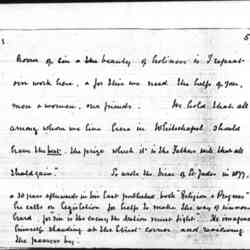 of sin & the beauty of holiness is I repeat
our work here, & for this we need the help of you,
men & women, our friends. We hold that all
among whom we live here in Whitechapel should
have the best, the prize which it is the Fathers will that all
should gain." So wrote the Vicar of St Jude's in 1877,
& 30 years afterwards in his last published book "Religion & Progress"
he calls on legislation for help to make the way of sin
hard for sin in the cities the nation must fight. He
himself standing at the street corner and
the passers by.